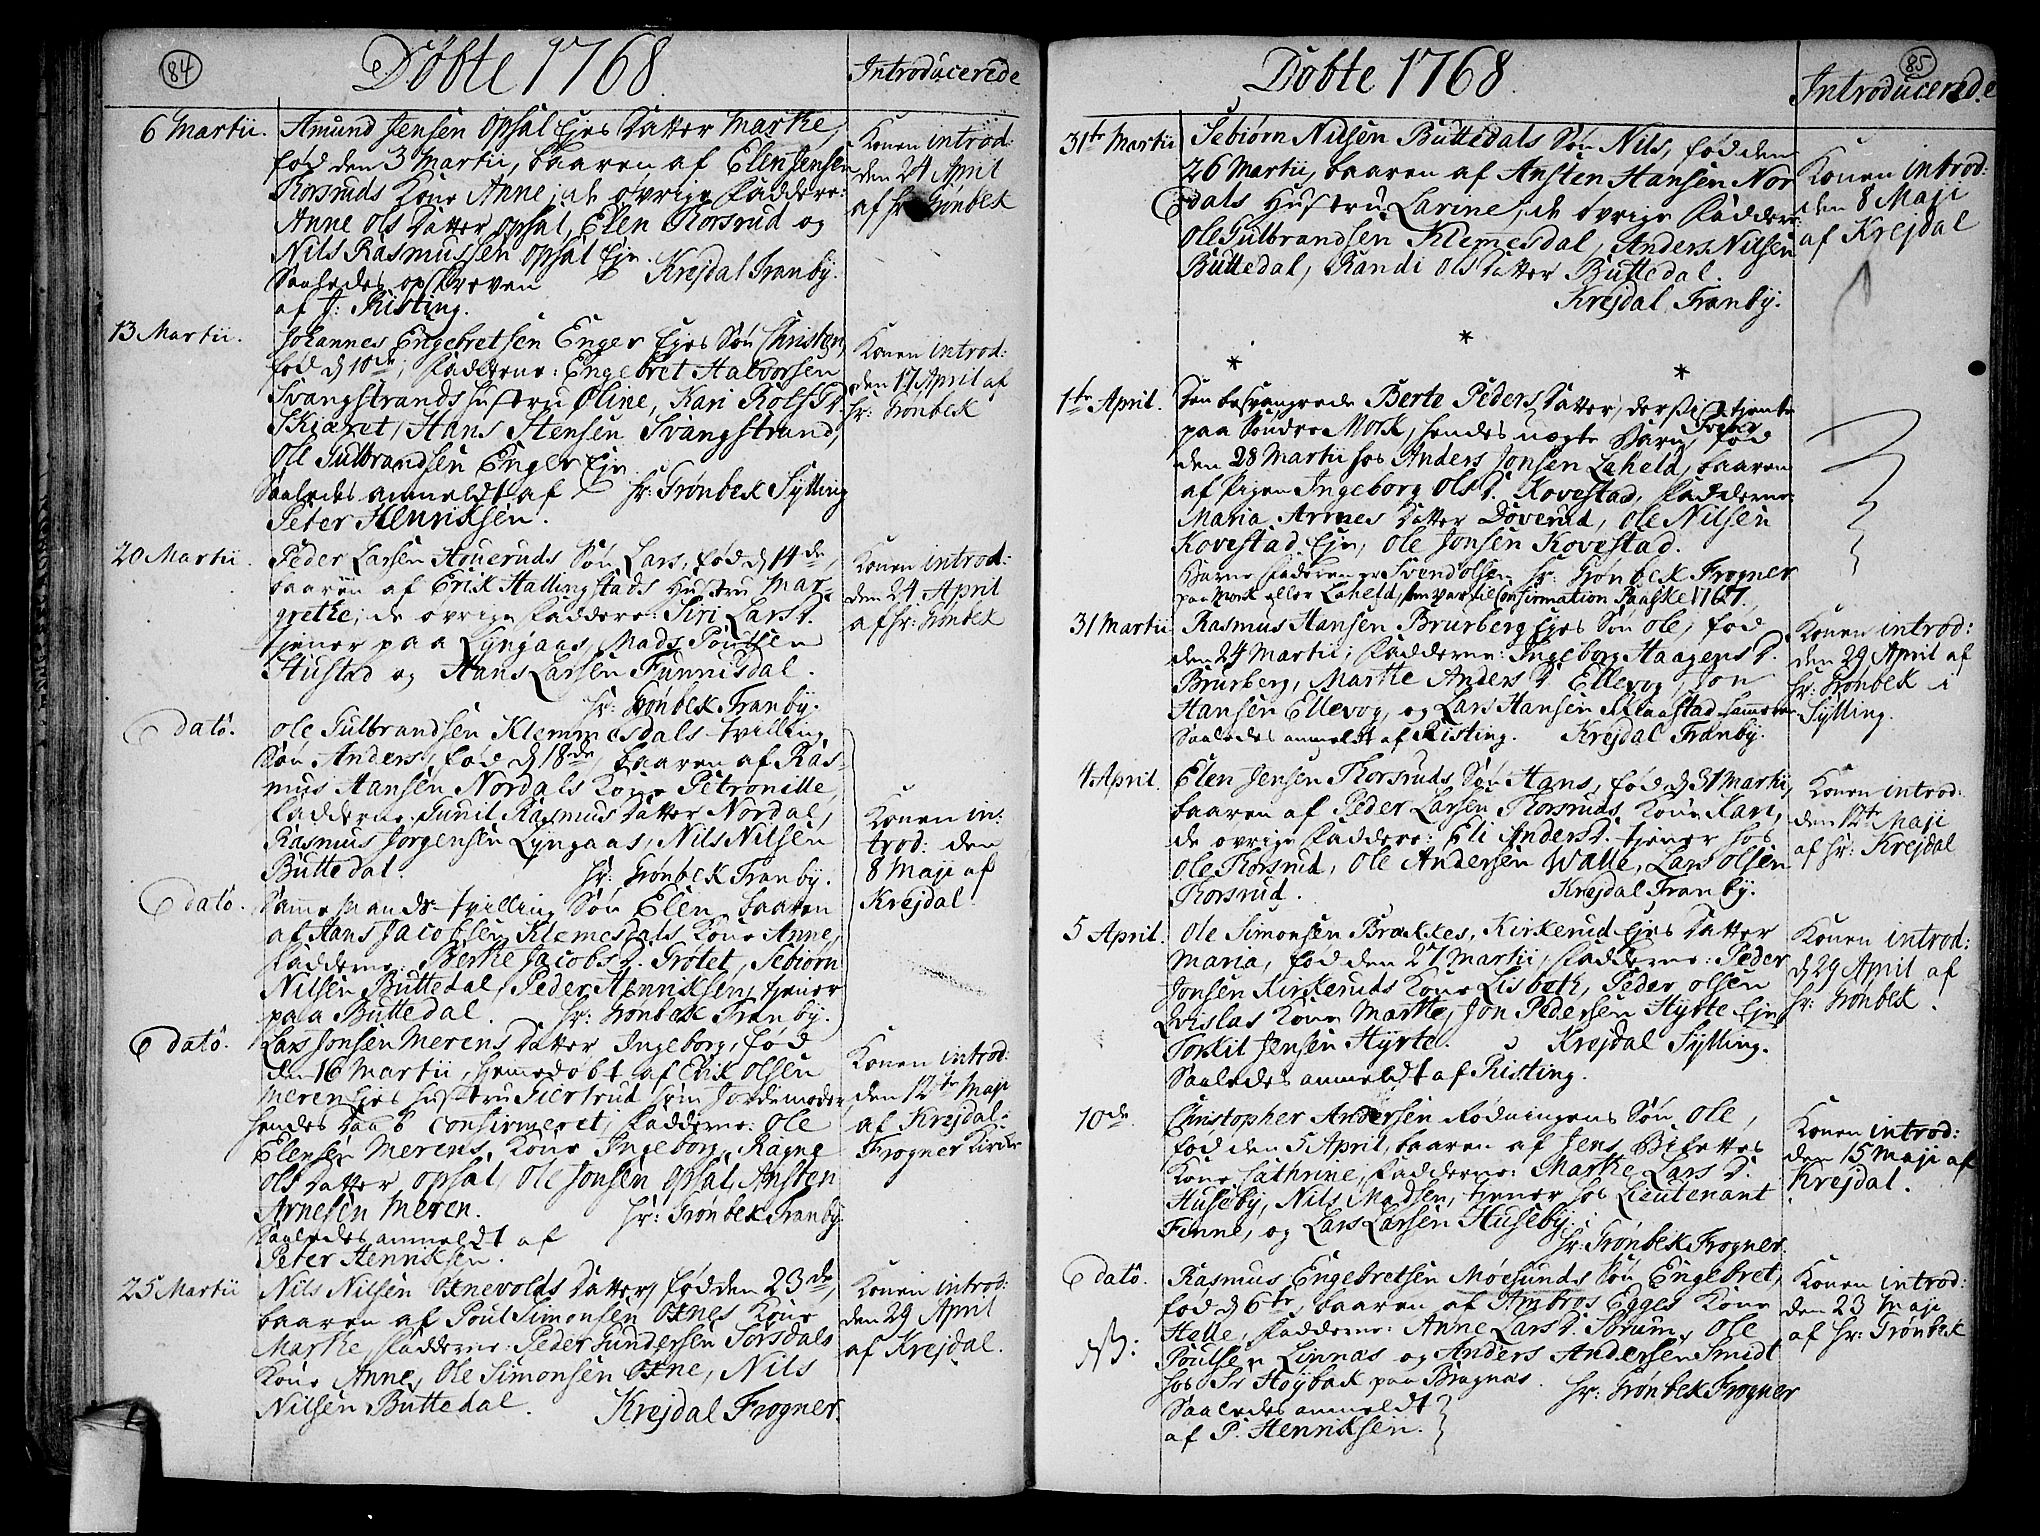 84
Döbte 1768.
Introducerede
6 Martii. Amund Jensen Opsal Ejes Datter Marthe,
fød den 3 Martii, baaren af Elen Jensen
Thorsruds Kone Anne; de øvrige Faddere:
Anne Ols Datter Opsal, Elen Thorsrud og
Nils Rasmussen Opsal Eje.
Saaledes opskreven Krejdal Tranby.
af J: Risting.
Konen introd:
den 24 April
af hr: Grönbek
13 Martii. Johannes Engebretsen Enger Ejes Søn Christen,
fød d 10de, Fadderne: Engebret Halvorsen
Svangstrands Hustru Oline, Kari Rolfs D.
Skiæret, Hans Stensen Svangstrand,
Ole Gulbrandsen Enger Eje.
Saaledes anmeldt af hr: Grönbek Sylling
Peter Henriksen.
Konen introd:
den 17 April af
hr: Grönbek
20 Martii. Peder Larsen Houeruds Søn Lars, fød d 14de,
baaren af Erik Hallingstads Hustru Mar-
grethe; de øvrige Faddere: Siri Lars D.
tjener paa Lyngaas, Mads Poulsen
Hustad og Hans Larsen Funnisdal.
hr: Grönbek Tranby.
Konen introd:
den 24 April
af hr: Grönbek
E dato. Ole Gulbrandsen Klemmesdals tvilling
Søn Anders, fød d 18de, baaren af Ras-
mus Hansen Nordals Kone Petronille,
Fadderne: Gunil Rasmus Datter Nordal,
Rasmus Jörgensen Lyngaas, Nils Nilsen
Buttedal. hr: Grönbek Tranby.
Konen in:
trod: den
8 Maji af
Krejdal.
E dato. Samme Mands tvilling Søn Elen, baaren
af Hans Jacobsen Klemesdals Kone Anne,
Fadderne: Berthe Jacobs D. Grötet, Sebiörn
Nilsen Buttedal, Peder Henriksen, tjener
paa Buttedal. hr: Grönbek Tranby.
E dato. Lars Jonsen Merens Datter Ingeborg, fød
den 16 Martii, hjemedøbt af Erik Olsen
Meren Ejes Hustru Giertrud som Jordemoder,
hendes Daab confirmeret; Fadderne: Ole
Elensen Merens Kone Ingeborg, Ragne
Ols Datter Opsal, Ole Jonsen Opsal, Ansten
Arnesen Meren. hr: Grönbek Tranby
Saaledes anmeldt af
Peter Henriksen.
Konen introd:
den 12te Maji
af Krejdal i
Frogner Kirke
25 Martii Nils Nilsen Oxnevolds Datter, fød den 23de,
baaren af Poul Simonsen Oxnes Kone
Marthe, Fadderne: Peder Gundersen Torsdals
Kone Anne, Ole Simonsen Oxne, Nils
Nilsen Buttedal. Krejdal Frogner.
Konen introd:
den 29 April
af Krejdal.
85
Döbte 1768.
Introducerede
31te Martii Sebiørn Nilsen Buttedals Søn Nils, fød den
26 Martii, baaren af Ansten Hansen Nor
dals Hustru Larine, de øvrige Faddere:
Ole Gulbrandsen Klemesdal, Anders Nilsen
Buttedal, Randi Ols Datter Buttedal.
Krejdal Tranby.
Konen introd:
den 8 Maji
af Krejdal
* * *
1te April. Den besvangrede Berte Peders Datter, der sidst tjente
paa Søndre Mork, hendes uægte Barn, fød
den 28 Martii hos Anders Jonsen Laheld, baaren
af Pigen Ingeborg Ols D. Kovestad, Fadderne:
Maria Arnes Datter Döverud, Ole Nilsen
Kovestad Eje, Ole Jonsen Kovestad.
Barne Faderen er Svend Olsen hr: Grönbek Frogner
paa Mork eller Laheld, hun var til Confirmation Paaske 1767.
31 Martii Rasmus Hansen Brurberg Ejes Søn Ole, fød
den 24 Martii; Fadderne: Ingeborg Haagens D.
Brurberg, Marthe Anders D. Ellevog, Jon
Hansen Ellevog, og Lars Hansen Flaastad
Saaledes anmeldt af Risting. Krejdal Tranby.
Konen introd:
den 29 April af
hr: Grönbek i
Sylling.
4 April. Elen Jensen Thorsruds Søn Hans, fød d 31 Martii,
baaren af Peder Larsen Thorsruds Kone Kari,
de øvrige Faddere: Eli Anders D. tjener hos
Ole Thorsrud, Ole Andersen Walle, Lars Olsen
Thorsrud. Krejdal Tranby.
Konen introd:
den 12te Maji
af hr: Krejdal
5 April. Ole Simonsen Brækkes, Kirkerud Ejes Datter
Maria, fød den 27 Martii, Fadderne: Peder
Jonsen Kirkeruds Kone Lisbeth, Peder Olsen
Qvislas Kone Marthe, Jon Pedersen Hyrte Eje
Torkil Jensen Hyrte. Krejdal Sylling.
Saaledes anmeldt af Risting.
Konen introd:
d 29 April af
hr: Grönbek.
10de Christopher Andersen Rödningens Søn Ole,
fød den 5 April, baaren af Jens Bilettes
Kone Cathrine, Fadderne: Marthe Lars D.
Huseby, Nils Madsen, tjener hos Lieutenant
Finne, og Lars Larsen Huseby.
hr: Grönbek Frogner.
Konen introd:
den 15 Maji af
Krejdal.
E dato. Rasmus Engebretsen Möesunds Søn Engebret,
fød d 6te, baaren af Ambros Egges Kone
Helle, Fadderne: Anne Lars D. Sörum, Ole
NB: Poulsen Linnæs og Anders Andersen Smidt
hos Sr Höybak paa Bragnæs. hr: Grönbek Frogner
Saaledes anmeldt
af P. Henriksen.
Konen introd:
den 23 Maji
af hr: Grönbek